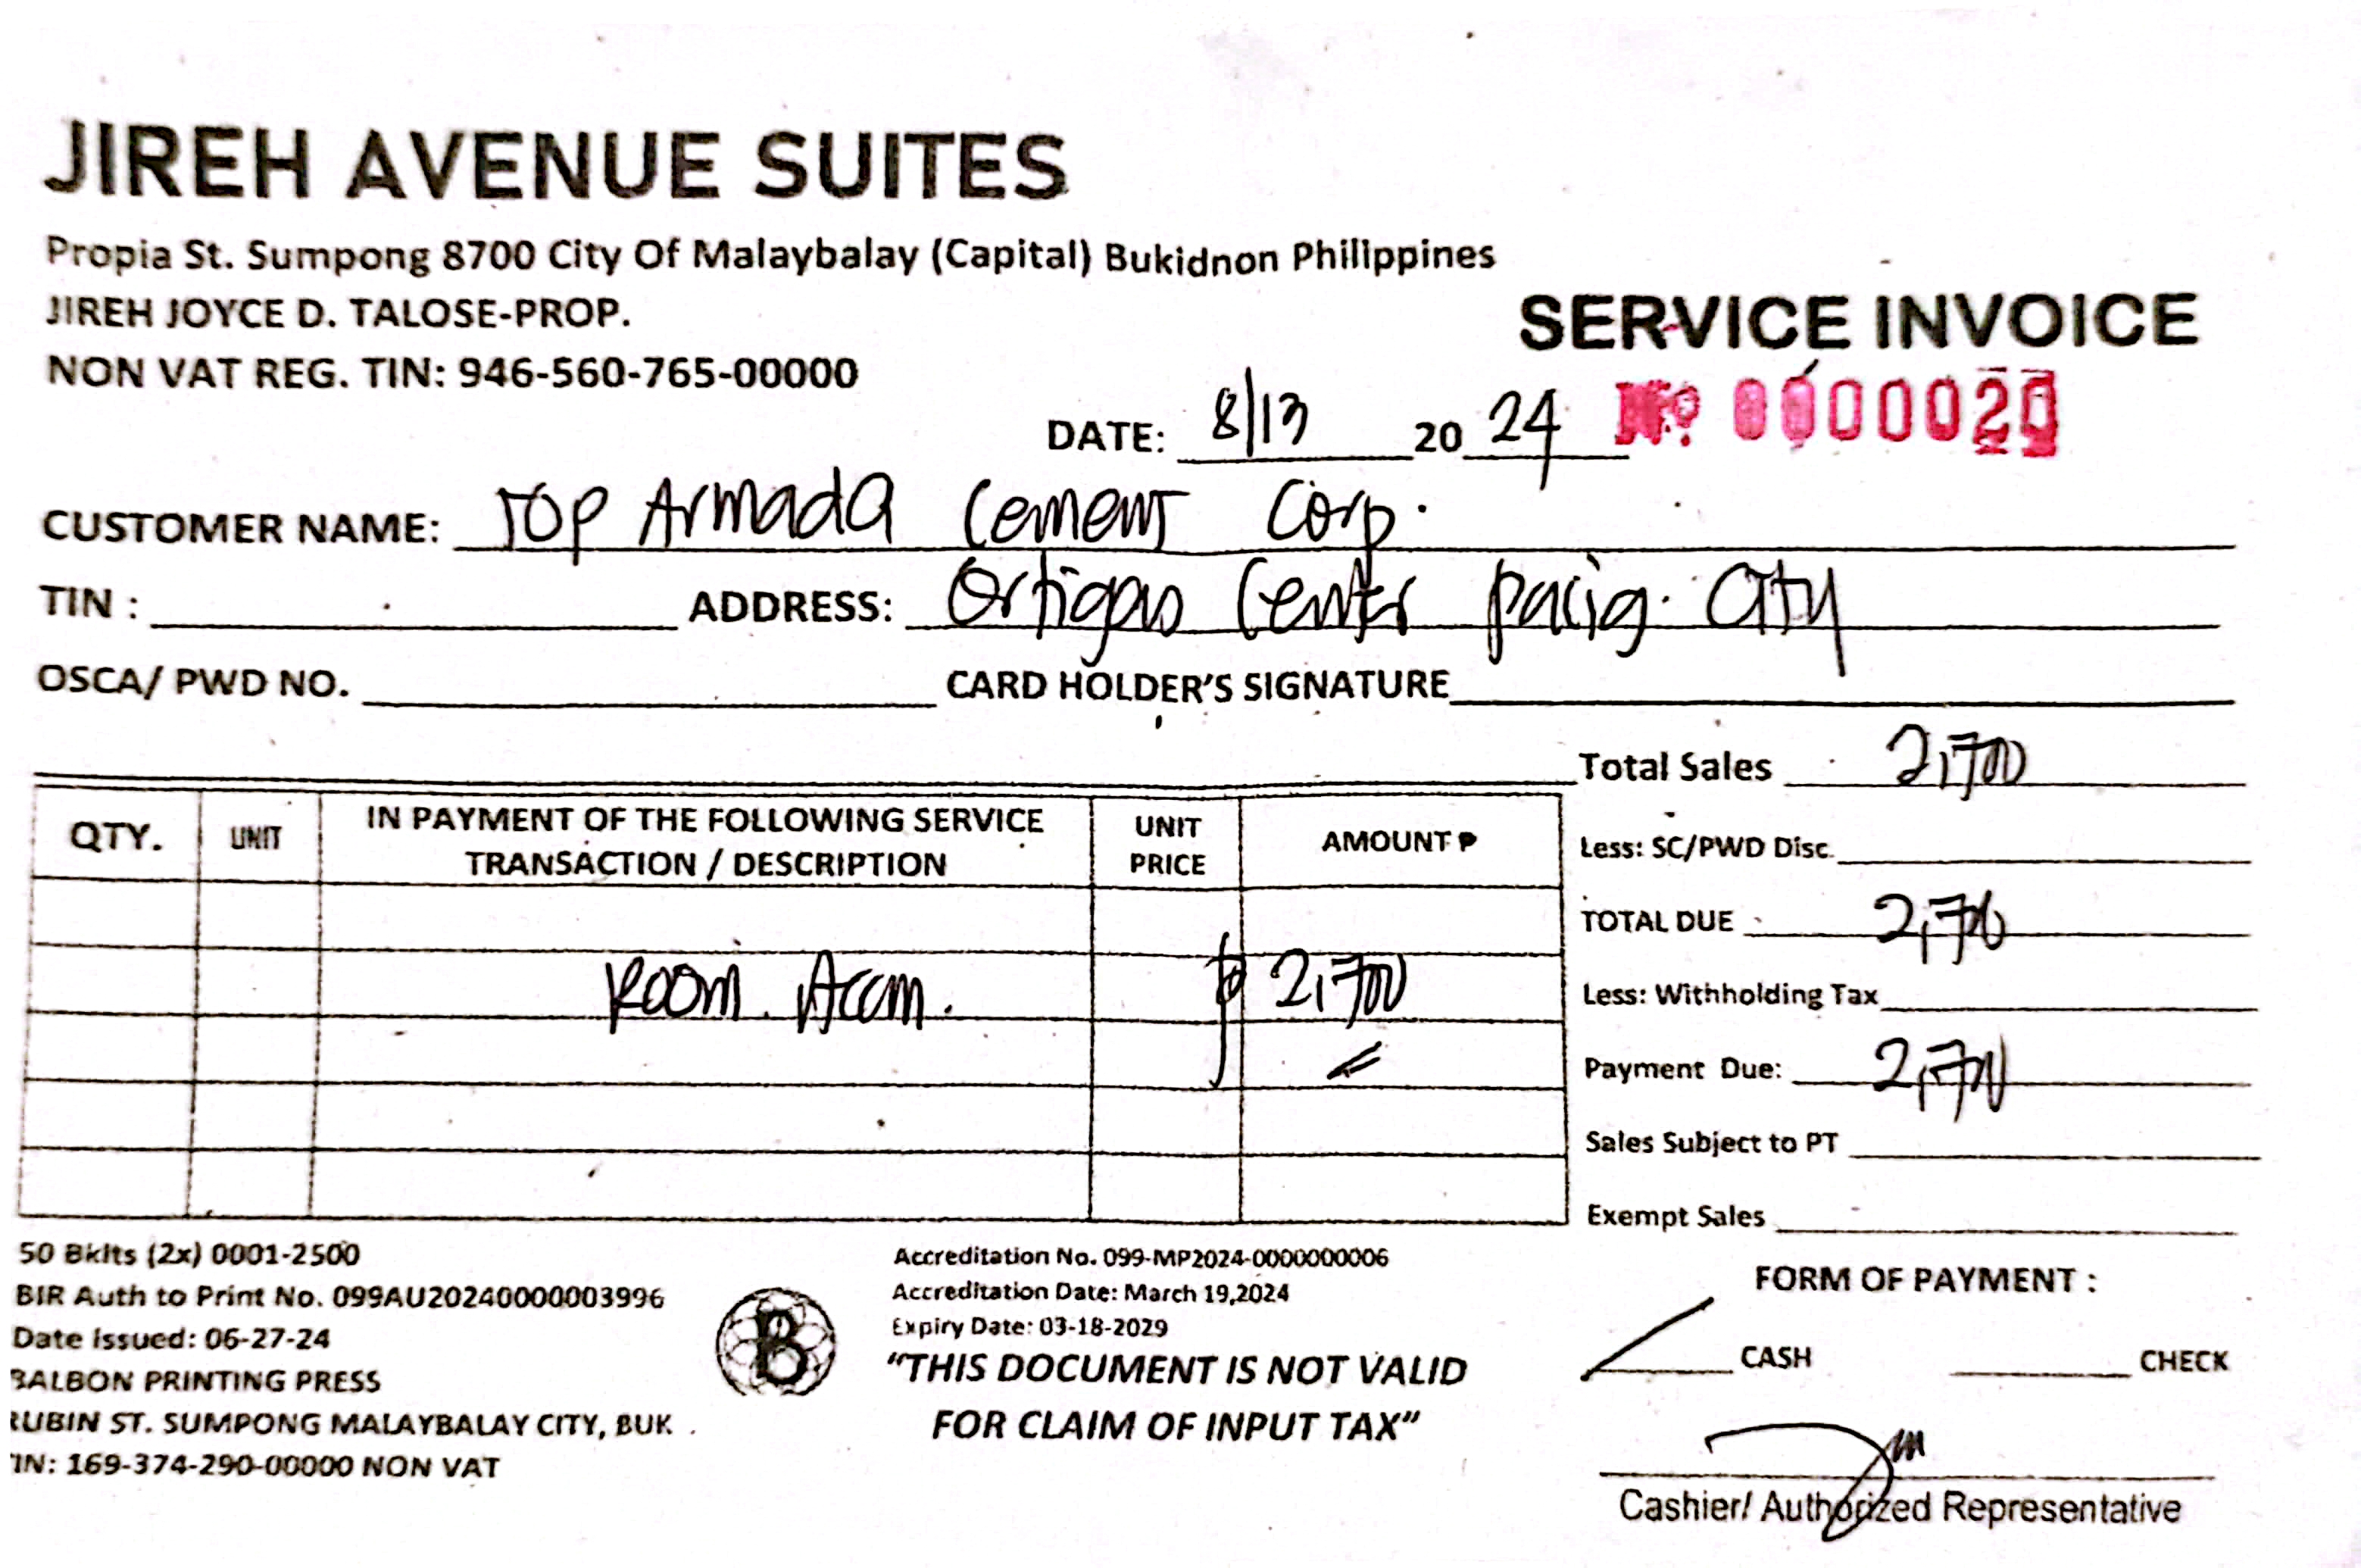 JIREH AVENUE SUITES
Propia St. Sumpong 8700 City Of Malaybalay (Capital) Bukidnon Philippines
JIREH JOYCE D. TALOSE-PROP.
NON VAT REG. TIN: 946-560-765-00000
SERVICE INVOICE
DATE: 8/13 20 24 Nº
CUSTOMER NAME: Top Armada Cement Corp.
TIN : ADDRESS: Ortigas Center Pasig City
OSCA/ PWD NO. CARD HOLDER'S SIGNATURE
QTY. UNIT IN PAYMENT OF THE FOLLOWING SERVICE TRANSACTION / DESCRIPTION UNIT PRICE AMOUNT ₱
Room Accm. ₱ 2,700
Total Sales 2,700
Less: SC/PWD Disc.
TOTAL DUE 2,700
Less: Withholding Tax
Payment Due: 2,700
Sales Subject to PT
Exempt Sales
50 Bklts (2x) 0001-2500
BIR Auth to Print No. 099AU20240000003996
Date Issued: 06-27-24
BALBON PRINTING PRESS
RUBIN ST. SUMPONG MALAYBALAY CITY, BUK.
TIN: 169-374-290-00000 NON VAT
B
Accreditation No. 099-MP2024-0000000006
Accreditation Date: March 19,2024
Expiry Date: 03-18-2029
"THIS DOCUMENT IS NOT VALID
FOR CLAIM OF INPUT TAX"
FORM OF PAYMENT :
CASH CHECK
Cashier/ Authorized Representative